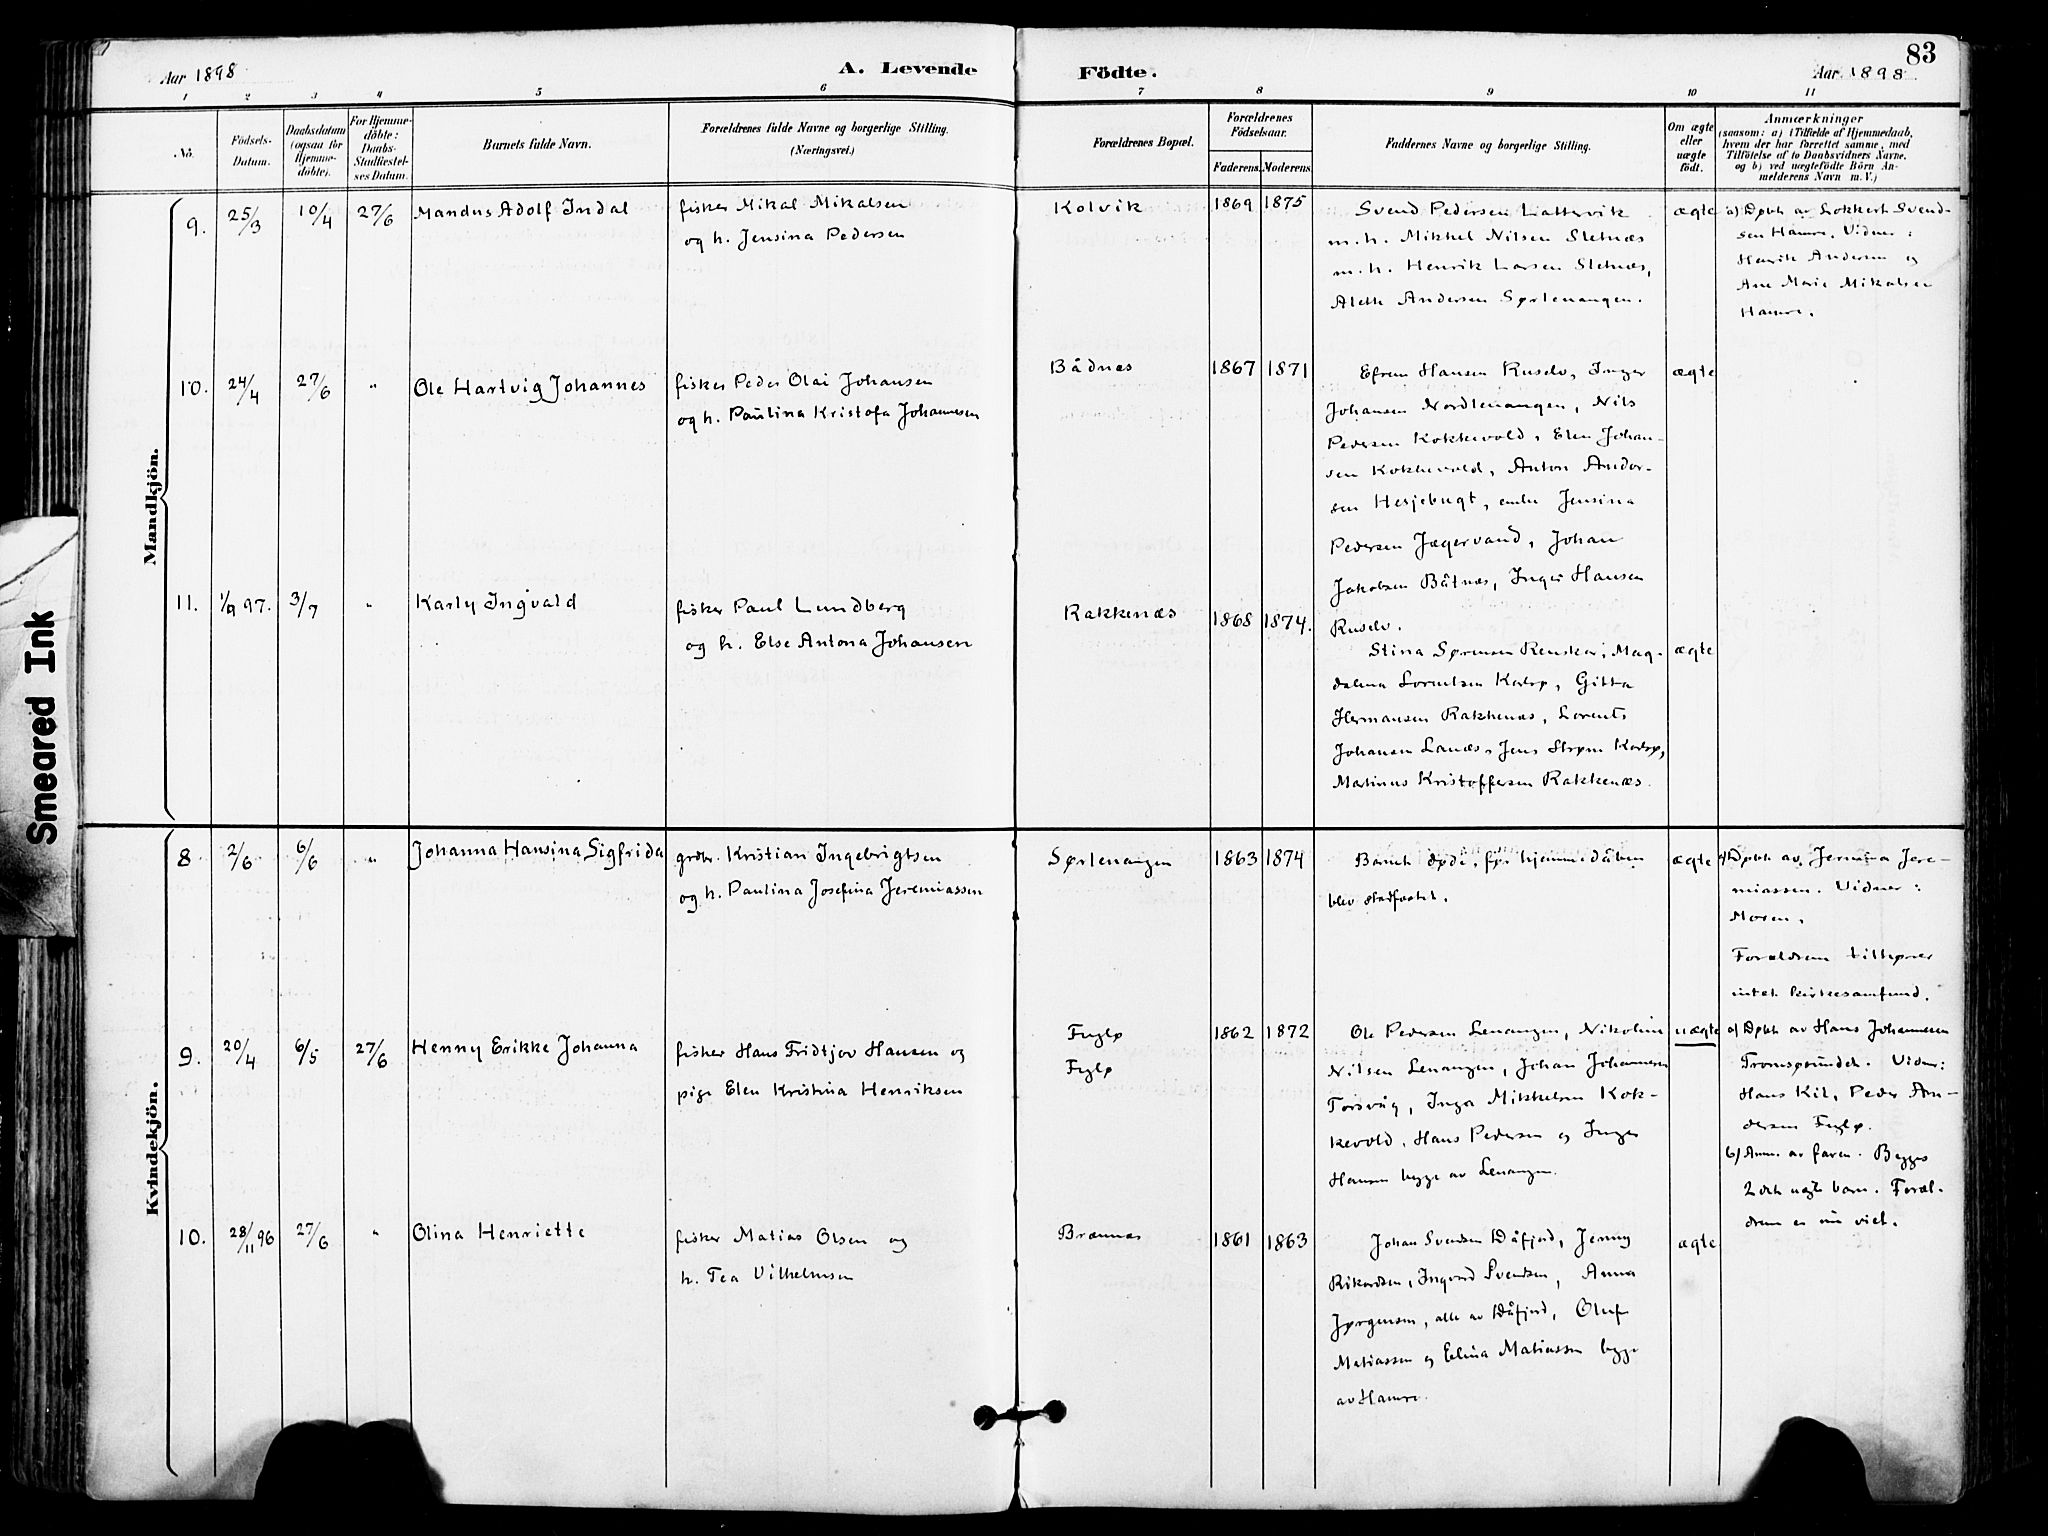 Aar 1898
A. Levende
Födte.
83
Aar 1898
1 2 3 4 5 6 7 8 9 10 11
No.
Födsels-
Datum.
Daabsdatum
(ogsaa for
Hjemme-
döbte).
For Hjemme-
döbte:
Daabs-
Stadfæstel-
ses Datum.
Barnets fulde Navn.
Forældrenes fulde Navne og borgerlige Stilling.
(Næringsvei.)
Forældrenes Bopæl.
Forældrenes
Födselsaar.
Faderens. Moderens.
Faddernes Navne og borgerlige Stilling.
Om ægte
eller
uægte
födt.
Anmærkninger
(saasom: a) i Tilfælde af Hjemmedaab,
hvem der har forrettet samme, med
Tilföielse af to Daabsvidners Navne,
og b) ved uægtefödte Börn An-
melderens Navn m. V.)
Mandkjön.
9. 25/3 10/4 27/6 Mandus Adolf Indal
fisker Mikal Mikalsen
og h. Jensina Pedersen
Kolvik 1869 1875
Svend Pedersen Lattervik
m. h. Mikkel Nilsen Sletnæs
m. h. Henrik Larsen Sletnæs,
Aleth Andersen Sørlenangen.
ægte
a) Døbt av Lokkert Svend-
sen Hamre. Vidner:
Henrik Andersen og
Ane Marie Mikalsen
Hamre.
10. 24/4 27/6 " Ole Hartvig Johannes
fisker Peder Olai Johansen
og h. Paulina Kristofa Johannesen
Bådnes 1867 1871
Efrem Hansen Ruselv, Inger
Johansen Nordlenangen, Nils
Pedersen Kokkevold, Elen Johan-
sen Kokkevold, Anton Ander-
sen Hesjebugt, enke Jensina
Pedersen Jægervand, Johan
Jakobsen Båtnes, Inger Hansen
Ruselv.
ægte
11. 1/9 97. 3/7 " Karly Ingvald
fisker Paul Lundberg
og h. Else Antona Johansen
Rakkenæs 1868 1874.
Stina Sørensen Renskar, Mag-
dalena Lorentsen Karlsø, Gitta
Hermansen Rakkenæs, Lorents
Johansen Lanæs, Jens Strøm Karlsø,
Martinus Kristoffersen Rakkenæs.
ægte
Kvindekjön.
8 2/6 6/6 " Johanna Hansina Sigfrida
grdbr. Kristian Ingebrigtsen
og h. Paulina Josefina Jeremiassen
Sørlenangen 1863 1874
Barnet døde, før hjemmedåben
blev stadfæstet.
ægte
a) Døbt av Jermina Jere-
miassen. Vidner:
Moren.
Forældrene tilhører
intet kirkesamfund.
9. 20/4 6/5 27/6 Henny Erikke Johanna
fisker Hans Fridtjov Hansen og
pige Elen Kristina Henriksen
Fuglø
Fuglø
1862 1872
Ole Pedersen Lenangen, Nikoline
Nilsen Lenangen, Johan Johannesen
Torsvåg, Inga Mikkelsen Kok-
kevold, Hans Pedersen og Inger
Hansen begge av Lenangen.
uægte
a) Døbt av Hans Johannesen
Tromsøsundet. Vidner:
Hans Kil, Peder An-
dersen Fuglø.
b) Anm. av faren. Begges
2det uægte barn. Foræl-
drene er nu viet.
10. 28/11 96 27/6 " Olina Henriette
fisker Matias Olsen og
h. Tea Vilhelmsen
Brænnes 1861 1863
Johan Svendsen Dåfjord, Jenny
Rikardsen, Ingvard Svendsen, Anna
Jørgensen, alle av Dåfjord, Oluf
Matiassen og Elina Matiassen begge
av Hamre.
ægte
Smeared Ink